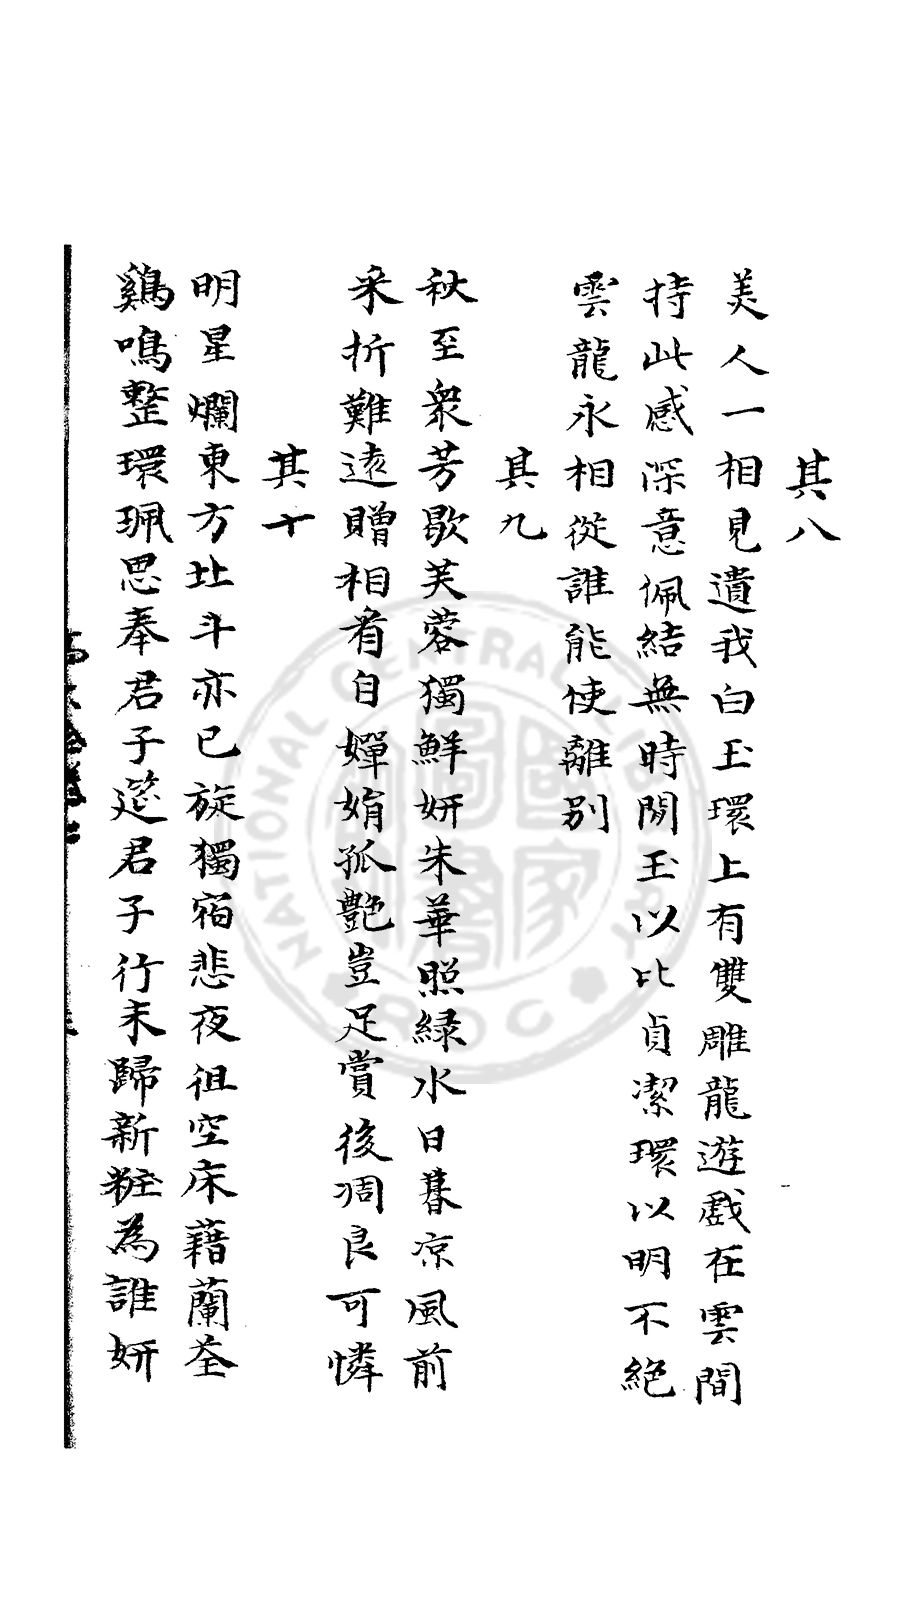 其八
美人一相見遺我白玉環上有雙雕龍遊戲在雲間
持此感深意佩結無時閒玉以比貞潔環以明不絕
雲龍永相從誰能使離別
其九
秋至衆芳歇芙蓉獨鮮妍朱華照緑水日暮凉風前
采折難遠贈相看自嬋娟孤艷豈足賞後凋良可憐
其十
明星爛東方北斗亦已旋獨宿悲夜徂空床藉蘭荃
鷄鳴整環珮思奉君子筵君子行未歸新粧為誰妍
NATIONAL CENTRAL LIBRARY
ROC
國家圖書館